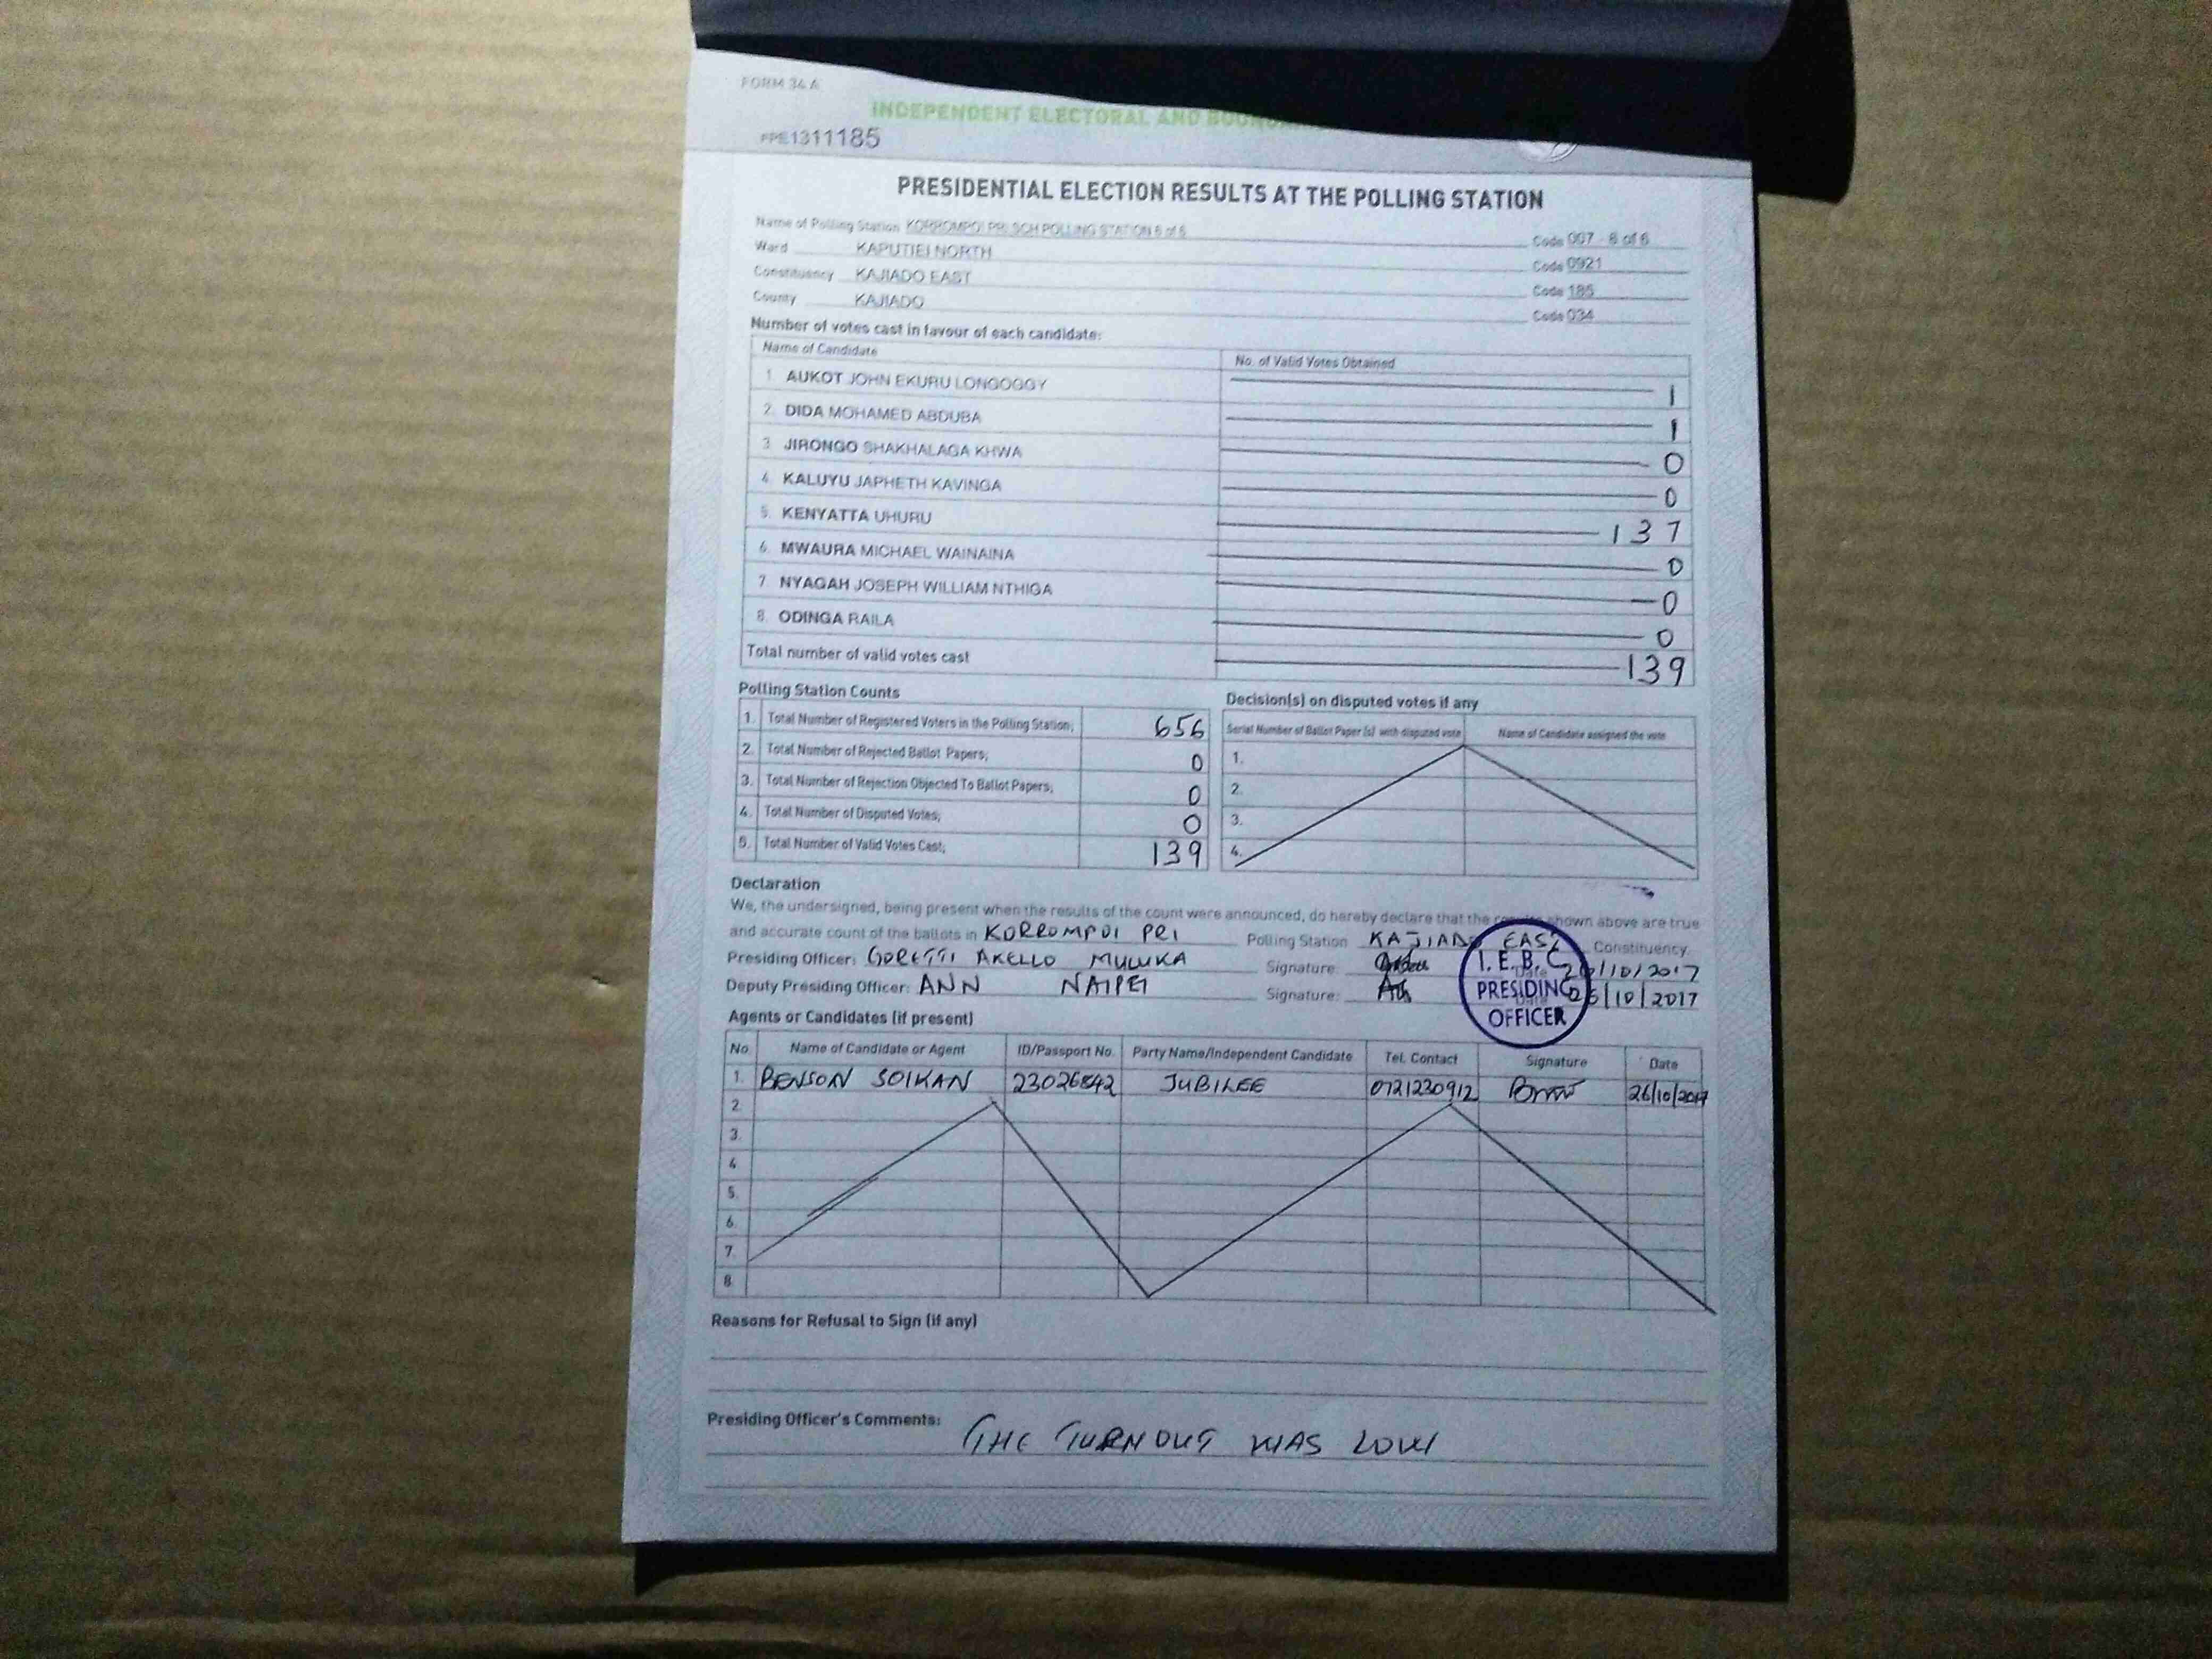 FORM 34 A
INDEPENDENT ELECTORAL AND
FPE1311185
PRESIDENTIAL ELECTION RESULTS AT THE POLLING STATION
Name of Polling Station KORROMPOI PRI SCH POLLING STATION 6 of 6 Code 007 - 6 of 6
Ward KAPUTIEI NORTH Code 0921
Constituency KAJIADO EAST Code 185
County KAJIADO Code 034
Number of votes cast in favour of each candidate:
Name of Candidate No. of Valid Votes Obtained
1. AUKOT JOHN EKURU LONGOGGY 1
2. DIDA MOHAMED ABDUBA 1
3. JIRONGO SHAKHALAGA KHWA 0
4. KALUYU JAPHETH KAVINGA 0
5. KENYATTA UHURU 137
6. MWAURA MICHAEL WAINAINA 0
7. NYAGAH JOSEPH WILLIAM NTHIGA 0
8. ODINGA RAILA 0
Total number of valid votes cast 139
Polling Station Counts
1. Total Number of Registered Voters in the Polling Station; 656
2. Total Number of Rejected Ballot Papers; 0
3. Total Number of Rejection Objected To Ballot Papers; 0
4. Total Number of Disputed Votes; 0
5. Total Number of Valid Votes Cast; 139
Decision(s) on disputed votes if any
Serial Number of Ballot Paper (s) with disputed vote Name of Candidate assigned the vote
1.
2.
3.
4.
Declaration
We, the undersigned, being present when the results of the count were announced, do hereby declare that the results shown above are true
and accurate count of the ballots in KORROMPOI PRI Polling Station KAJIADO EAST Constituency.
Presiding Officer: GORETTI AKELLO MULUKA Signature: Date 26/10/2017
Deputy Presiding Officer: ANN NAIPEI Signature: Date 26/10/2017
I. E. B. C
PRESIDING
OFFICER
Agents or Candidates (if present)
No. Name of Candidate or Agent ID/Passport No. Party Name/Independent Candidate Tel. Contact Signature Date
1. BENSON SOIKAN 23026842 JUBILEE 0721230912 26/10/2017
2.
3.
4.
5.
6.
7.
8.
Reasons for Refusal to Sign (if any)
Presiding Officer's Comments: THE TURNOUT WAS LOW